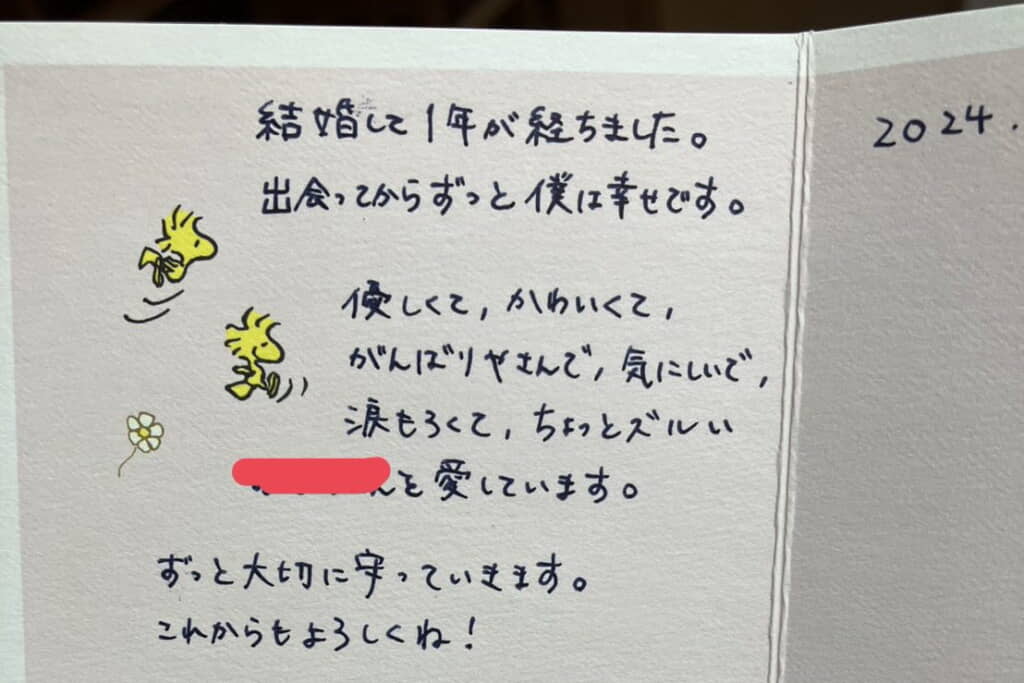 結婚して1年が経ちました。
出会ってからずっと僕は幸せです。
優しくて,かわいくて,
がんばりやさんで,気にしいで,
涙もろくて,ちょっとズルい
んを愛しています。
ずっと大切に守っていきます。
これからもよろしくね!
2024.